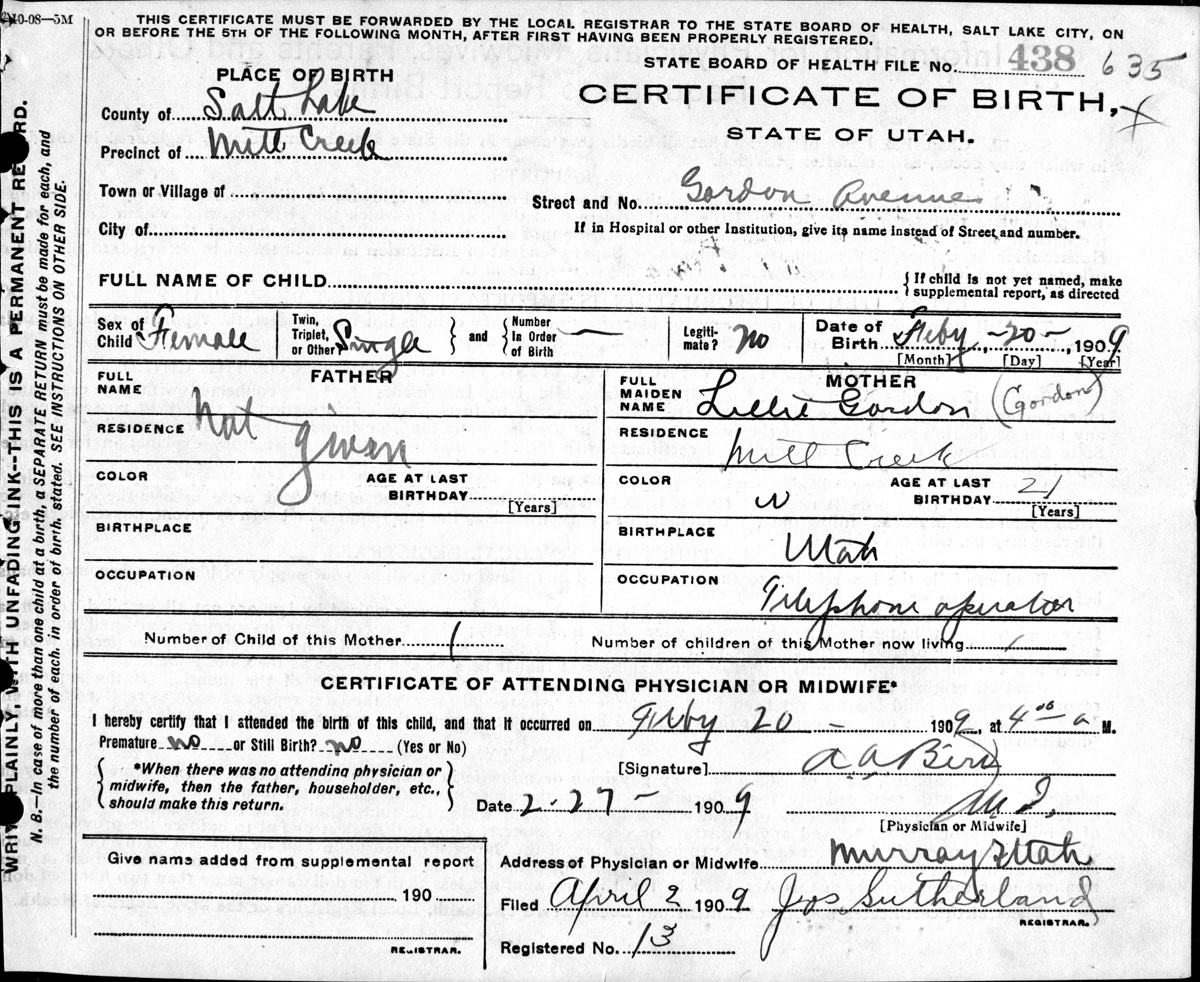 10-08—5M
THIS CERTIFICATE MUST BE FORWARDED BY THE LOCAL REGISTRAR TO THE STATE BOARD OF HEALTH, SALT LAKE CITY, ON
OR BEFORE THE 5TH OF THE FOLLOWING MONTH, AFTER FIRST HAVING BEEN PROPERLY REGISTERED.
STATE BOARD OF HEALTH FILE No. 438 635
PLACE OF BIRTH
CERTIFICATE OF BIRTH,
STATE OF UTAH.
County of Salt Lake
Precinct of Mill Creek
Town or Village of
Street and No. Gordon Avenue
City of
If in Hospital or other Institution, give its name instead of Street and number.
FULL NAME OF CHILD
{ If child is not yet named, make
supplemental report, as directed
Sex of Child Female
Twin, Triplet, or Other Single } and { Number In Order of Birth —
Legiti- mate? No
Date of Birth Feby - 20 - , 1909
[Month] [Day] [Year]
FATHER
FULL NAME Not given
RESIDENCE
COLOR
AGE AT LAST BIRTHDAY
[Years]
BIRTHPLACE
OCCUPATION
MOTHER
FULL MAIDEN NAME Lillie Gordon (Gordon)
RESIDENCE Mill Creek
COLOR W
AGE AT LAST BIRTHDAY 21
[Years]
BIRTHPLACE Utah
OCCUPATION Telephone operator
Number of Child of this Mother 1
Number of children of this Mother now living 1
CERTIFICATE OF ATTENDING PHYSICIAN OR MIDWIFE*
I hereby certify that I attended the birth of this child, and that it occurred on Feby 20 — 1909, at 4 00 a M.
Premature no or Still Birth? no (Yes or No)
{ *When there was no attending physician or
midwife, then the father, householder, etc.,
should make this return. }
[Signature] A A Bird
Date 2-27- 1909
[Physician or Midwife]
Give name added from supplemental report
190
REGISTRAR.
Address of Physician or Midwife Murray Utah
Filed April 2 1909 Jos Sutherland
REGISTRAR.
Registered No. 13
WRITE PLAINLY, WITH UNFADING INK--THIS IS A PERMANENT RECORD.
N. B.—In case of more than one child at a birth, a SEPARATE RETURN must be made for each, and
the number of each, in order of birth, stated. SEE INSTRUCTIONS ON OTHER SIDE.